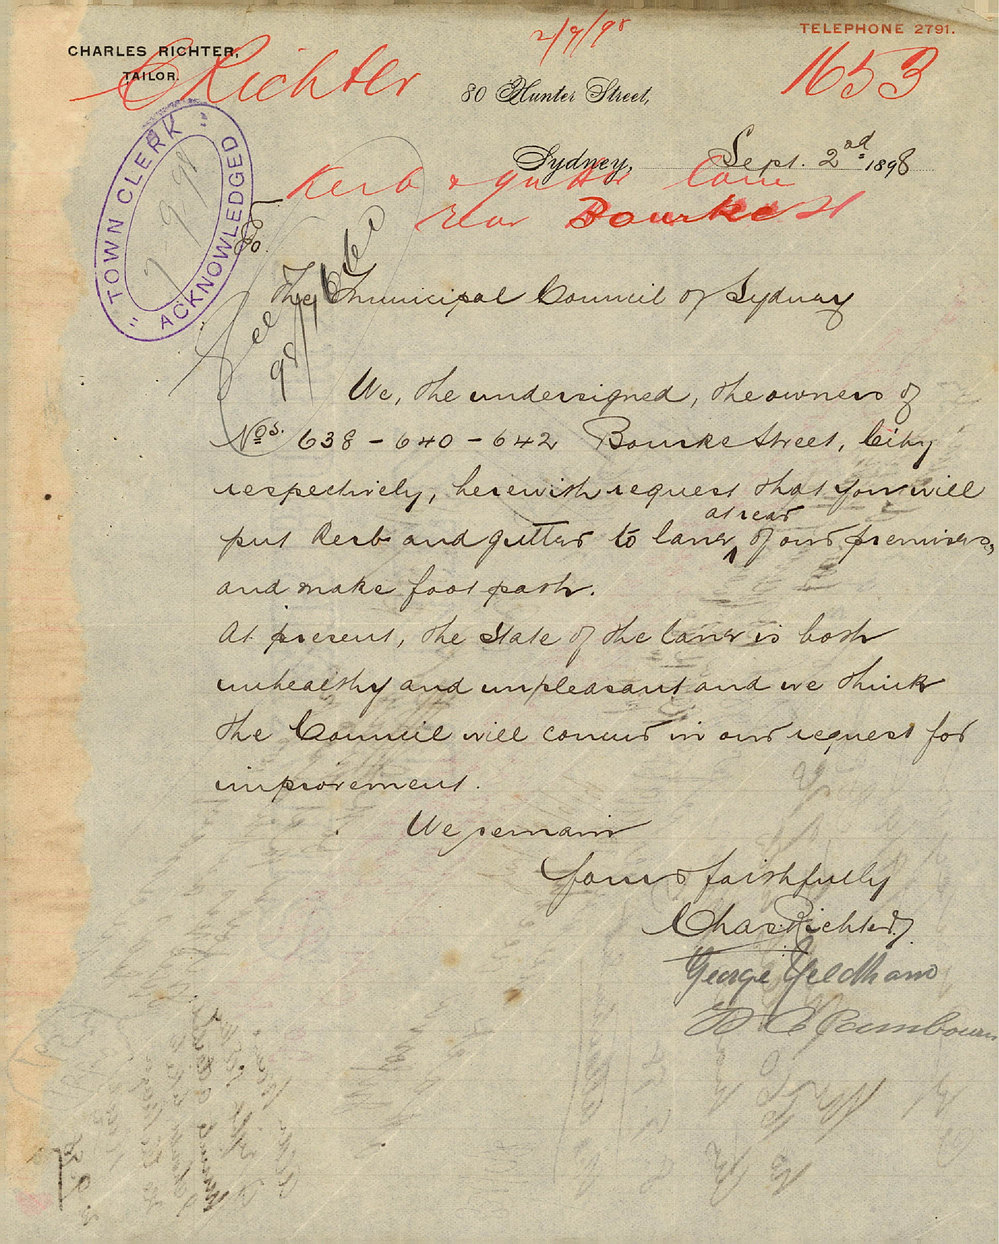 TELEPHONE 2791.
CHARLES RICHTER,
TAILOR.
C Richter
2/9/98
1653
80 Hunter Street,
Sydney, Sept. 2nd 1898
Kerb & gutter lane
rear Bourke St
"TOWN CLERK"
7-9-98
ACKNOWLEDGED
See
98/
The Municipal Council of Sydney
We, the undersigned, the owners of
Nos. 638 - 640 - 642 Bourke Street, City
respectively, herewith request that you will
at rear
put Kerb and gutter to lane of our premises,
and make foot path.
At present, the state of the lane is both
unhealthy and unpleasant and we think
the Council will concur in our request for
improvement.
We remain
Yours faithfully
Chas Richter
George